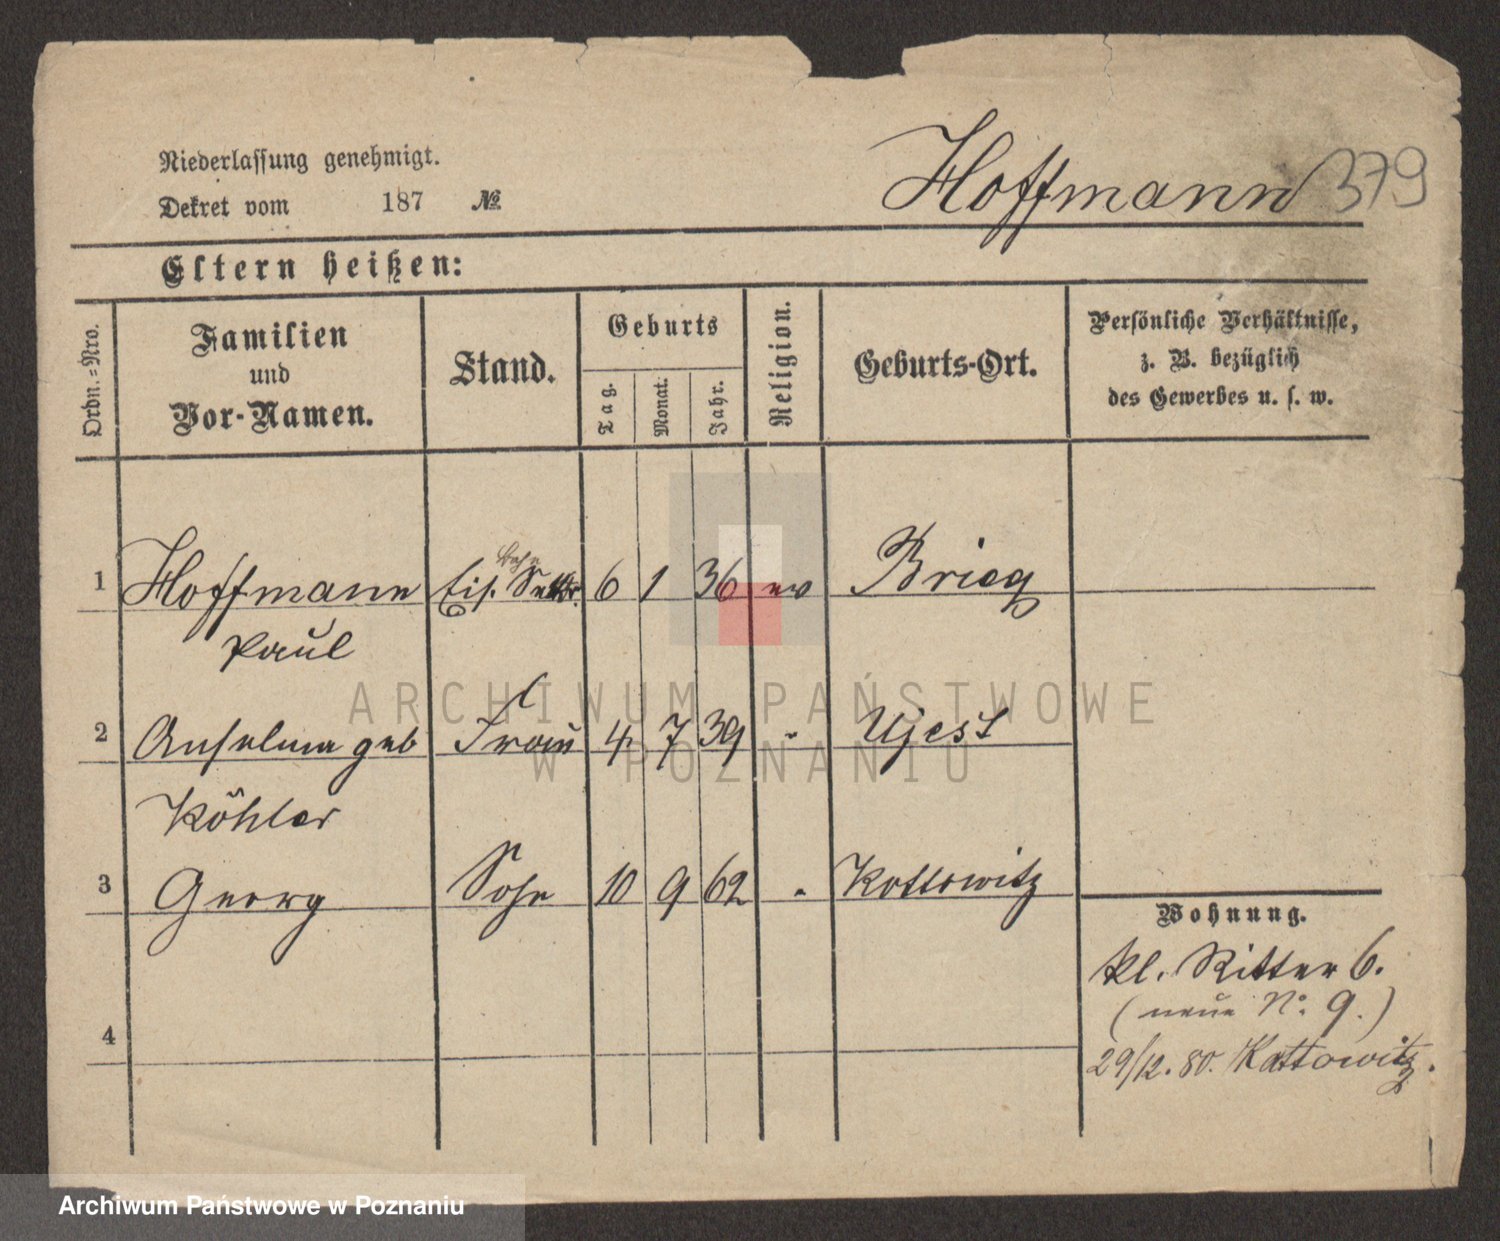 Niederlassung genehmigt.
Dekret vom 187 №
Hoffmann 379
Eltern heißen:
Ordn.=Nro.
Familien
und
Vor-Namen.
Stand.
Geburts
Tag.
Monat.
Jahr.
Religion.
Geburts-Ort.
Persönliche Verhältnisse,
z. B. bezüglich
des Gewerbes u. s. w.
Bahn
1 Hoffmann Eis. Sekr. 6 1 36 ev Brieg
Paul
2 Anselma geb Frau 4 7 39 " Ujest
Köhler
3 Georg Sohn 10 9 62 " Kattowitz
Wohnung.
kl. Ritter 6.
(neue No. 9.)
4
29/12. 80. Kattowitz.
ARCHIWUM PAŃSTWOWE
W POZNANIU
Archiwum Państwowe w Poznaniu